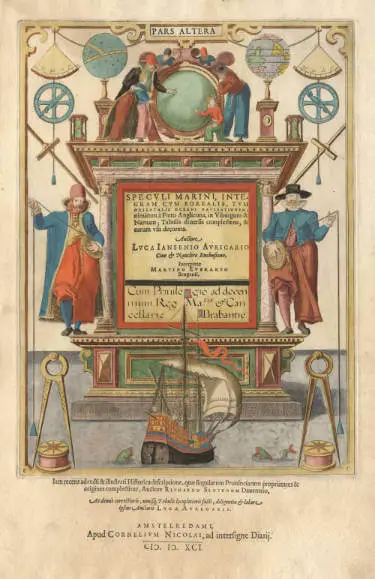 PARS ALTERA
SPECVLI MARINI, INTE-
GRAM CVM BOREALIS, TVM
ORIENTALIS OCEANI NAVIGATIONEM,
nimirum à Freto Anglicano, in Viburgum &
Narvam, Tabulis diversis complectens, &
earum usu decorata.
Auctore
LVCA IANSENIO AVRIGARIO
Cive & Nauclero Enchusano.
Interprete
MARTINO EVERARTO
Brugensi.
Cum Privilegio ad decen
nium Reg. Ma.tis et Can
cellarie Brabantie
Item recens adiecta & illustrata Historica descriptione, quae singularum Provinciarum proprietates &
origines complectitur, Auctore RICHARDO SLVTENOM Daventrio,
Ac denuò correctioris, novisq; Tabulis locupletioris facti, diligentia & labore
ipsius Auctoris LVCAE AVRIGARII.
AMSTELREDAMI,
Apud CORNELIVM NICOLAI, ad intersigne Diarij.
CIↃ. IↃ. XCI.